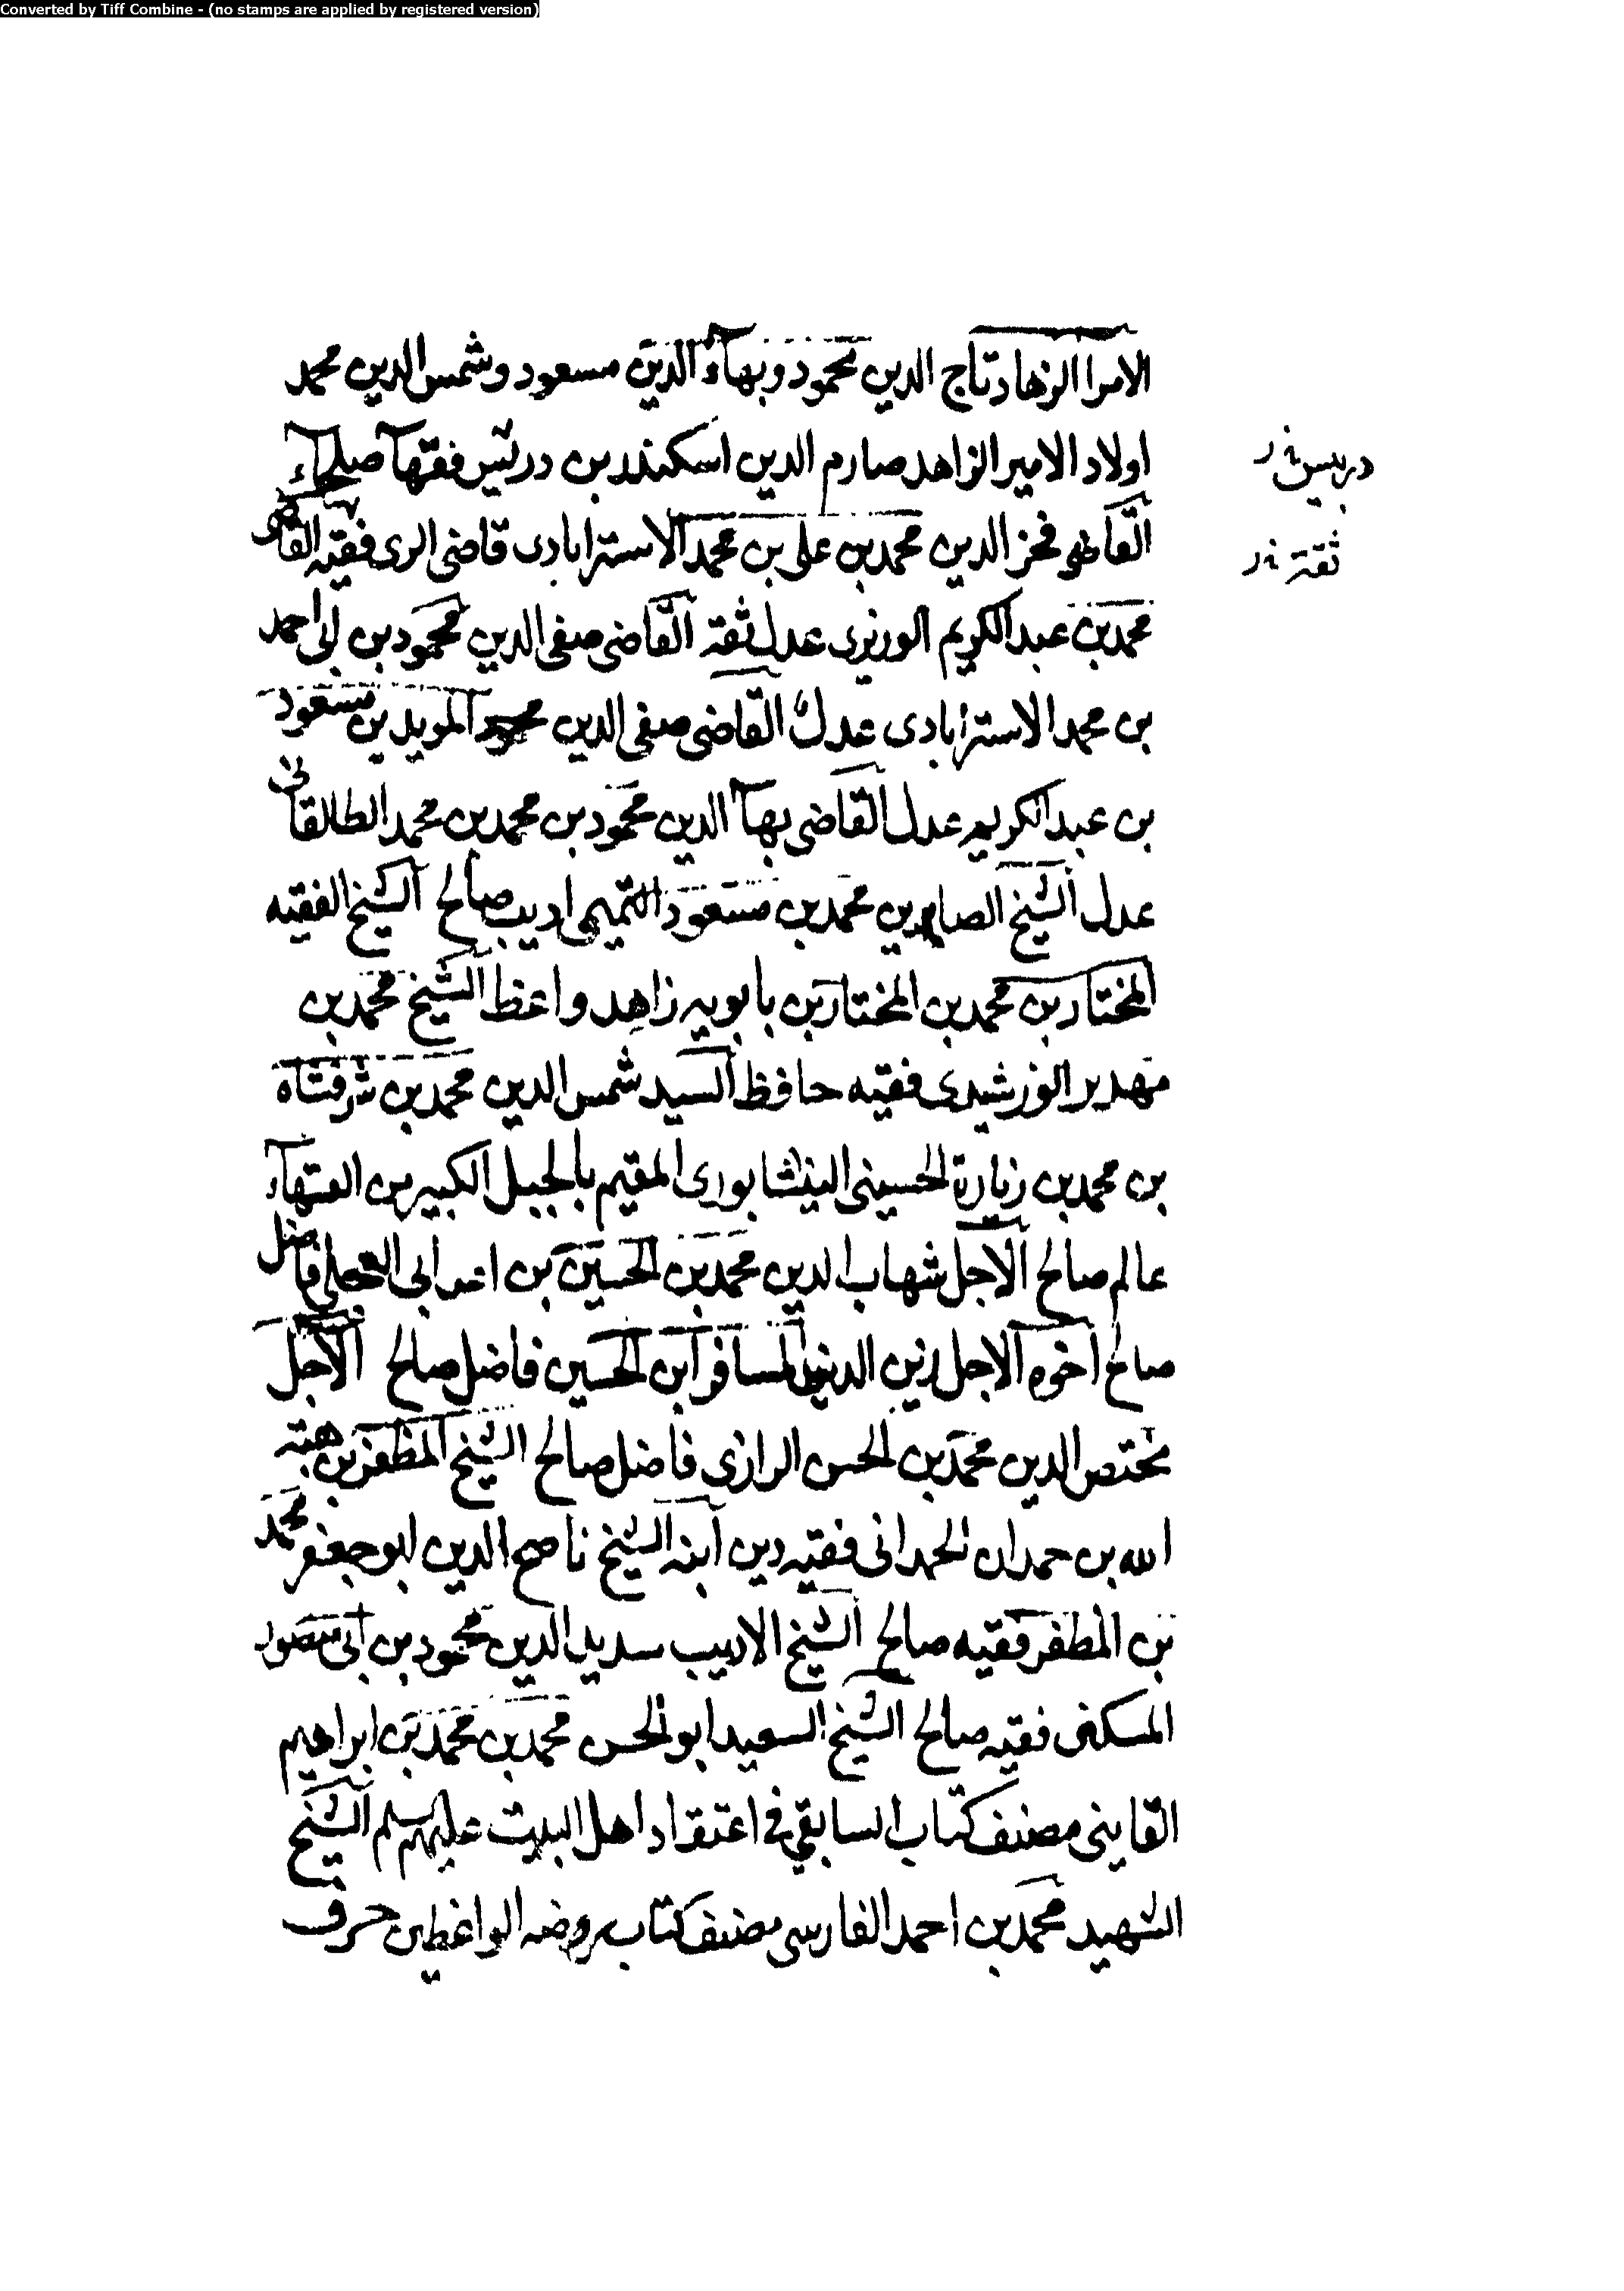 Converted by Tiff Combine - (no stamps are applied by registered version)
الامرا الزهاد تاج الدين محمود وبهآء الدين مسعود وشمس الدين محمد
اولاد الامير الزاهد صارم الدين اسكندر بن دربيس فقهآ صلحآء
دربيس
القاضى فخر الدين محمد بن على بن محمد الاسترابادى قاضى الرى فقيه القاضى
ثقة
محمد بن عبد الكريم الوزيرى عدل ثقة القاضى صفى الدين محمود بن ابى احمد
بن محمد الاسترابادى عدل القاضى صفى الدين المويد بن مسعود
بن عبد الكريم عدل القاضى بهآ الدين محمود بن محمد بن محمد الطالقانى
عدل الشيخ الصاين بن محمد بن مسعود التميمى اديب صالح الشيخ الفقيه
المختار بن محمد بن المختار بن بابويه زاهد واعظ الشيخ محمد بن
مهدير الورشيدى فقيه حافظ السيد شمس الدين محمد بن شرفشاه
بن محمد بن زيارة الحسينى النيشابورى المقيم بالجبل الكبير من الفقهآء
عالم صالح الاجل شهاب الدين محمد بن الحسين بن اعرابى العجلى فاضل
صالح اخوه الاجل زين الدين المسافر ابن الحسين فاضل صالح الاجل
مختص الدين محمد بن الحسن الرازى فاضل صالح الشيخ المظفر بن هبة
الله بن حمدان الحمدانى فقيه دين ابنه الشيخ ناصح الدين ابو جعفر محمد
بن المظفر فقيه صالح الشيخ الاديب سديد الدين محمود بن ابى منصور
المسكنى فقيه صالح الشيخ السعيد ابو الحسن محمد بن محمد بن ابراهيم
القاينى مصنف كتاب السابقى فى اعتقاد اهل البيت عليهم سلم الشيخ
الشهيد محمد بن احمد الفارسى مصنف كتاب روضه الواعظين حرف